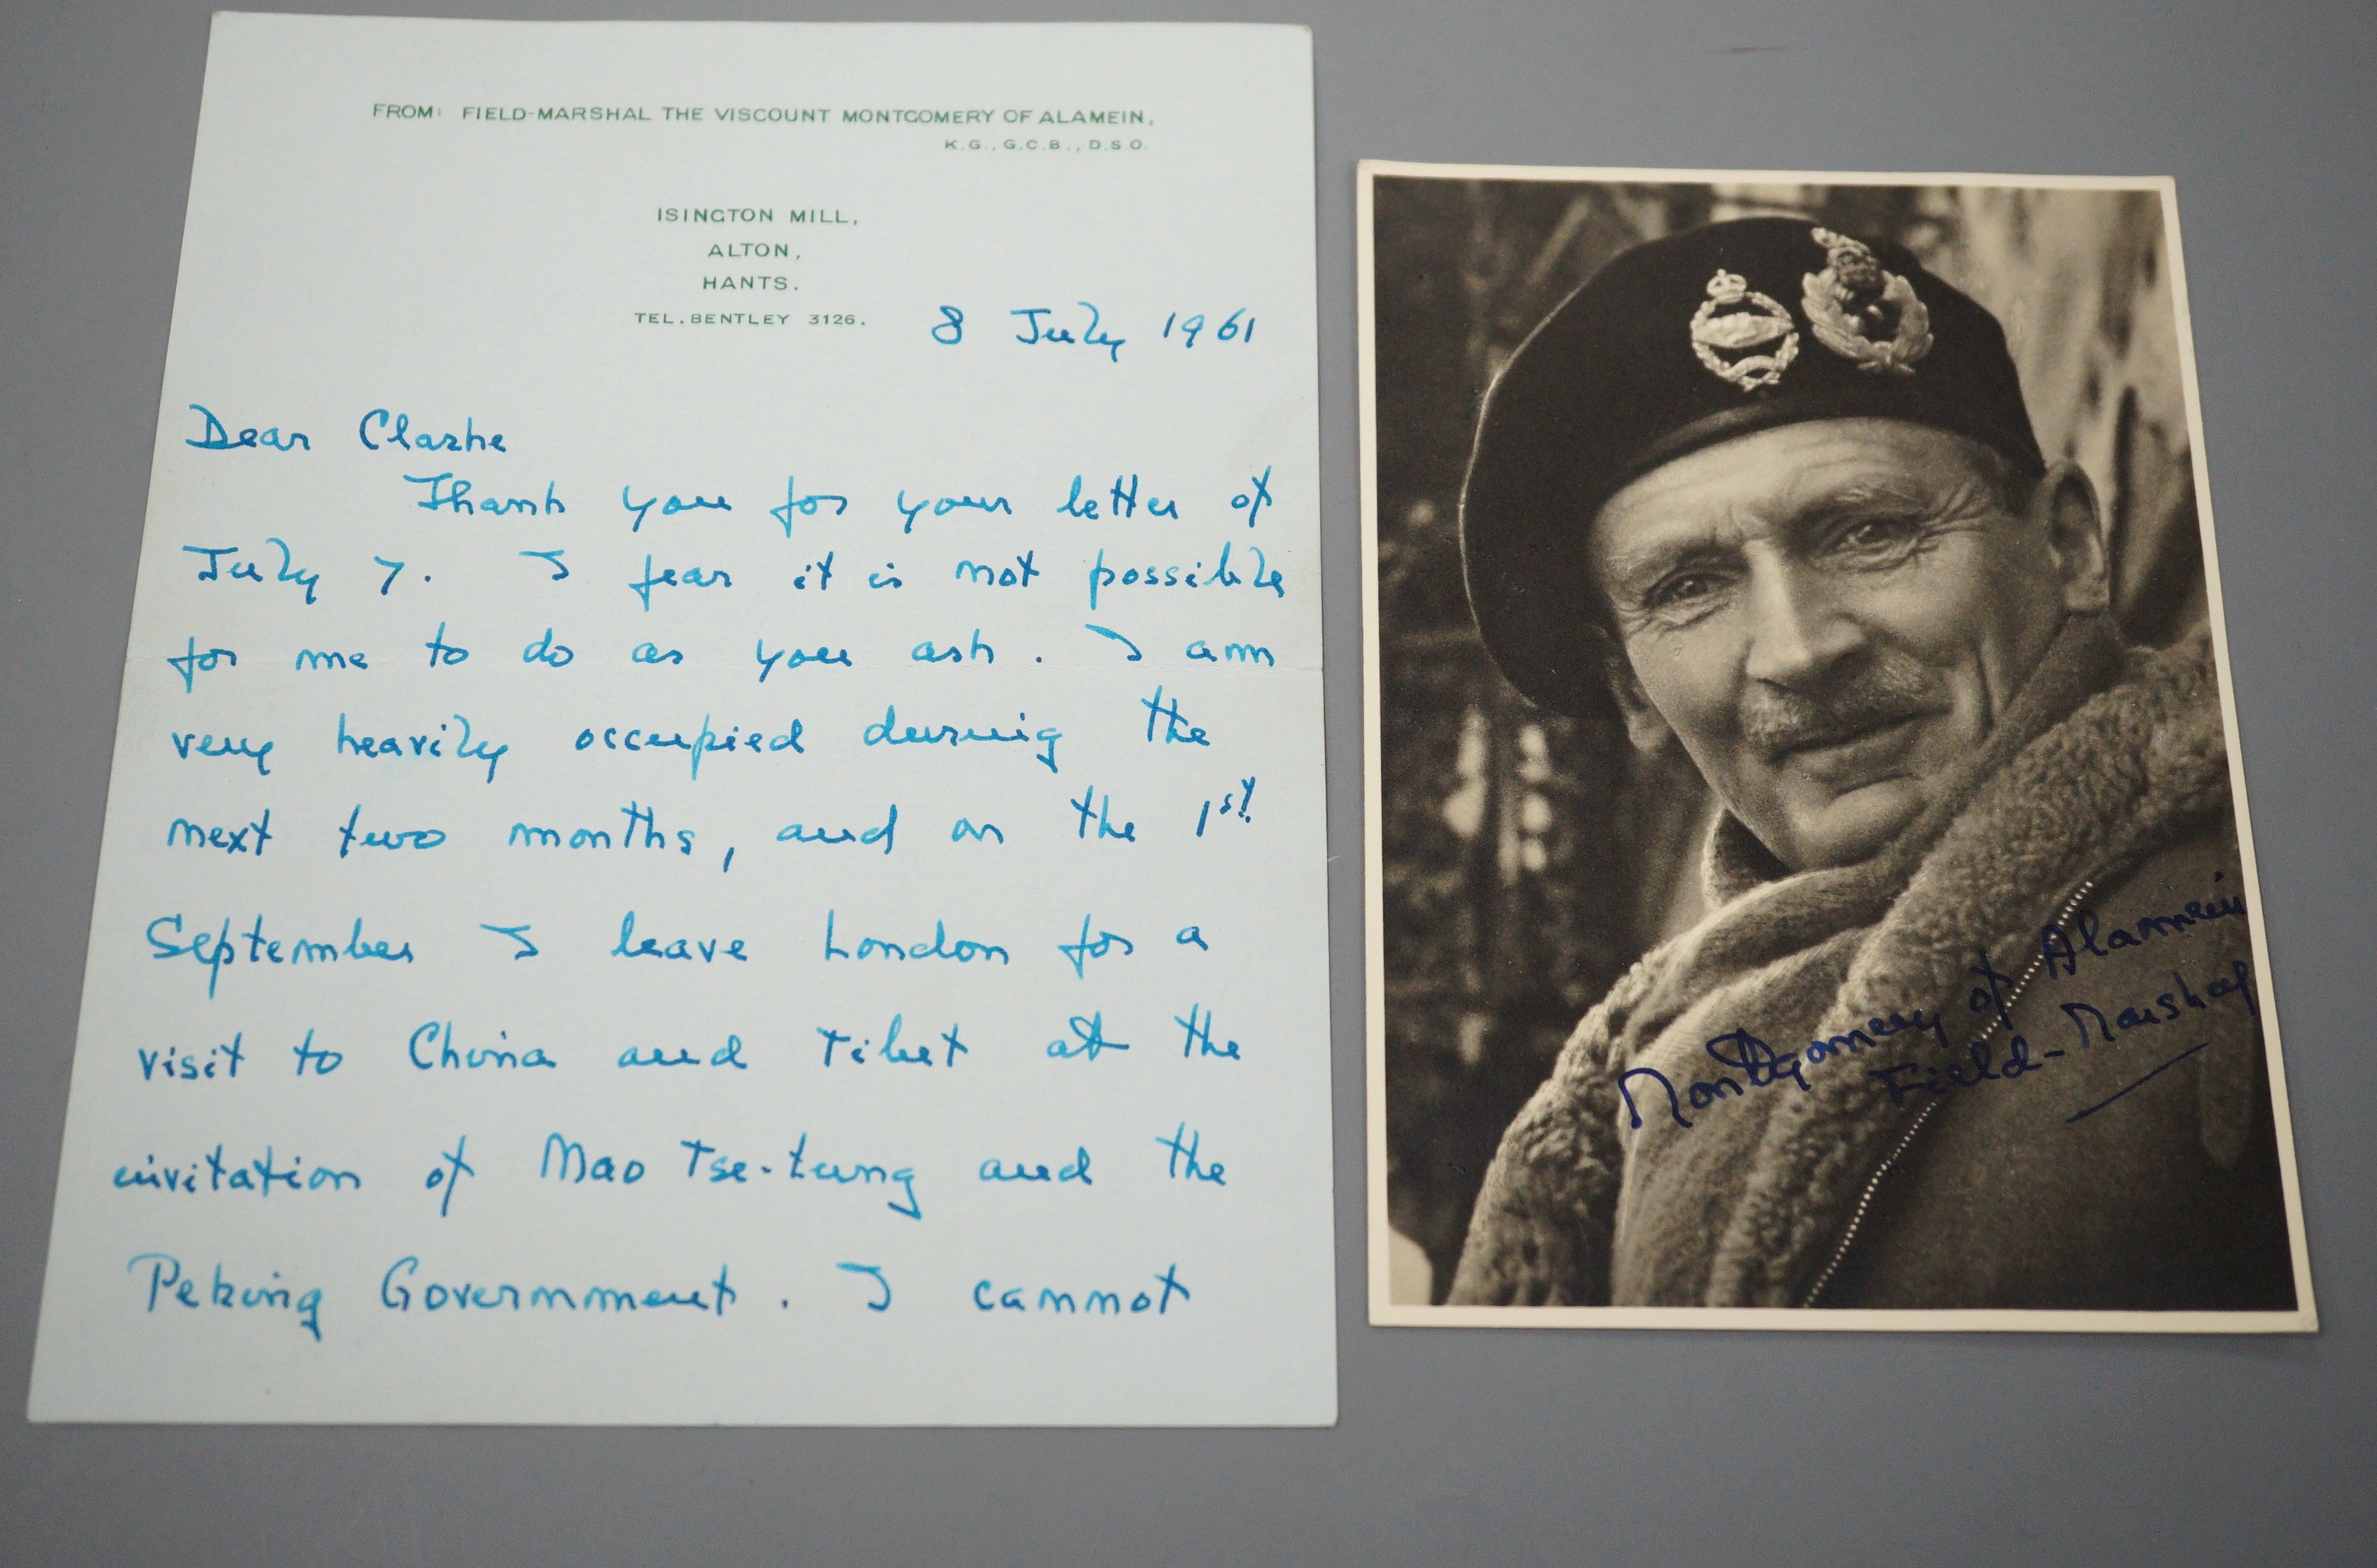 FROM: FIELD-MARSHAL THE VISCOUNT MONTGOMERY OF ALAMEIN,
K.G., G.C.B., D.S.O.
ISINGTON MILL,
ALTON,
HANTS.
TEL. BENTLEY 3126.
8 July 1961
Dear Clarke
Thank you for your letter of
July 7. I fear it is not possible
for me to do as you ask. I am
very heavily occupied during the
next two months, and on the 1st
September I leave London for a
visit to China and Tibet at the
invitation of Mao Tse-tung and the
Peking Government. I cannot
Montgomery of Alamein
Field-Marshal